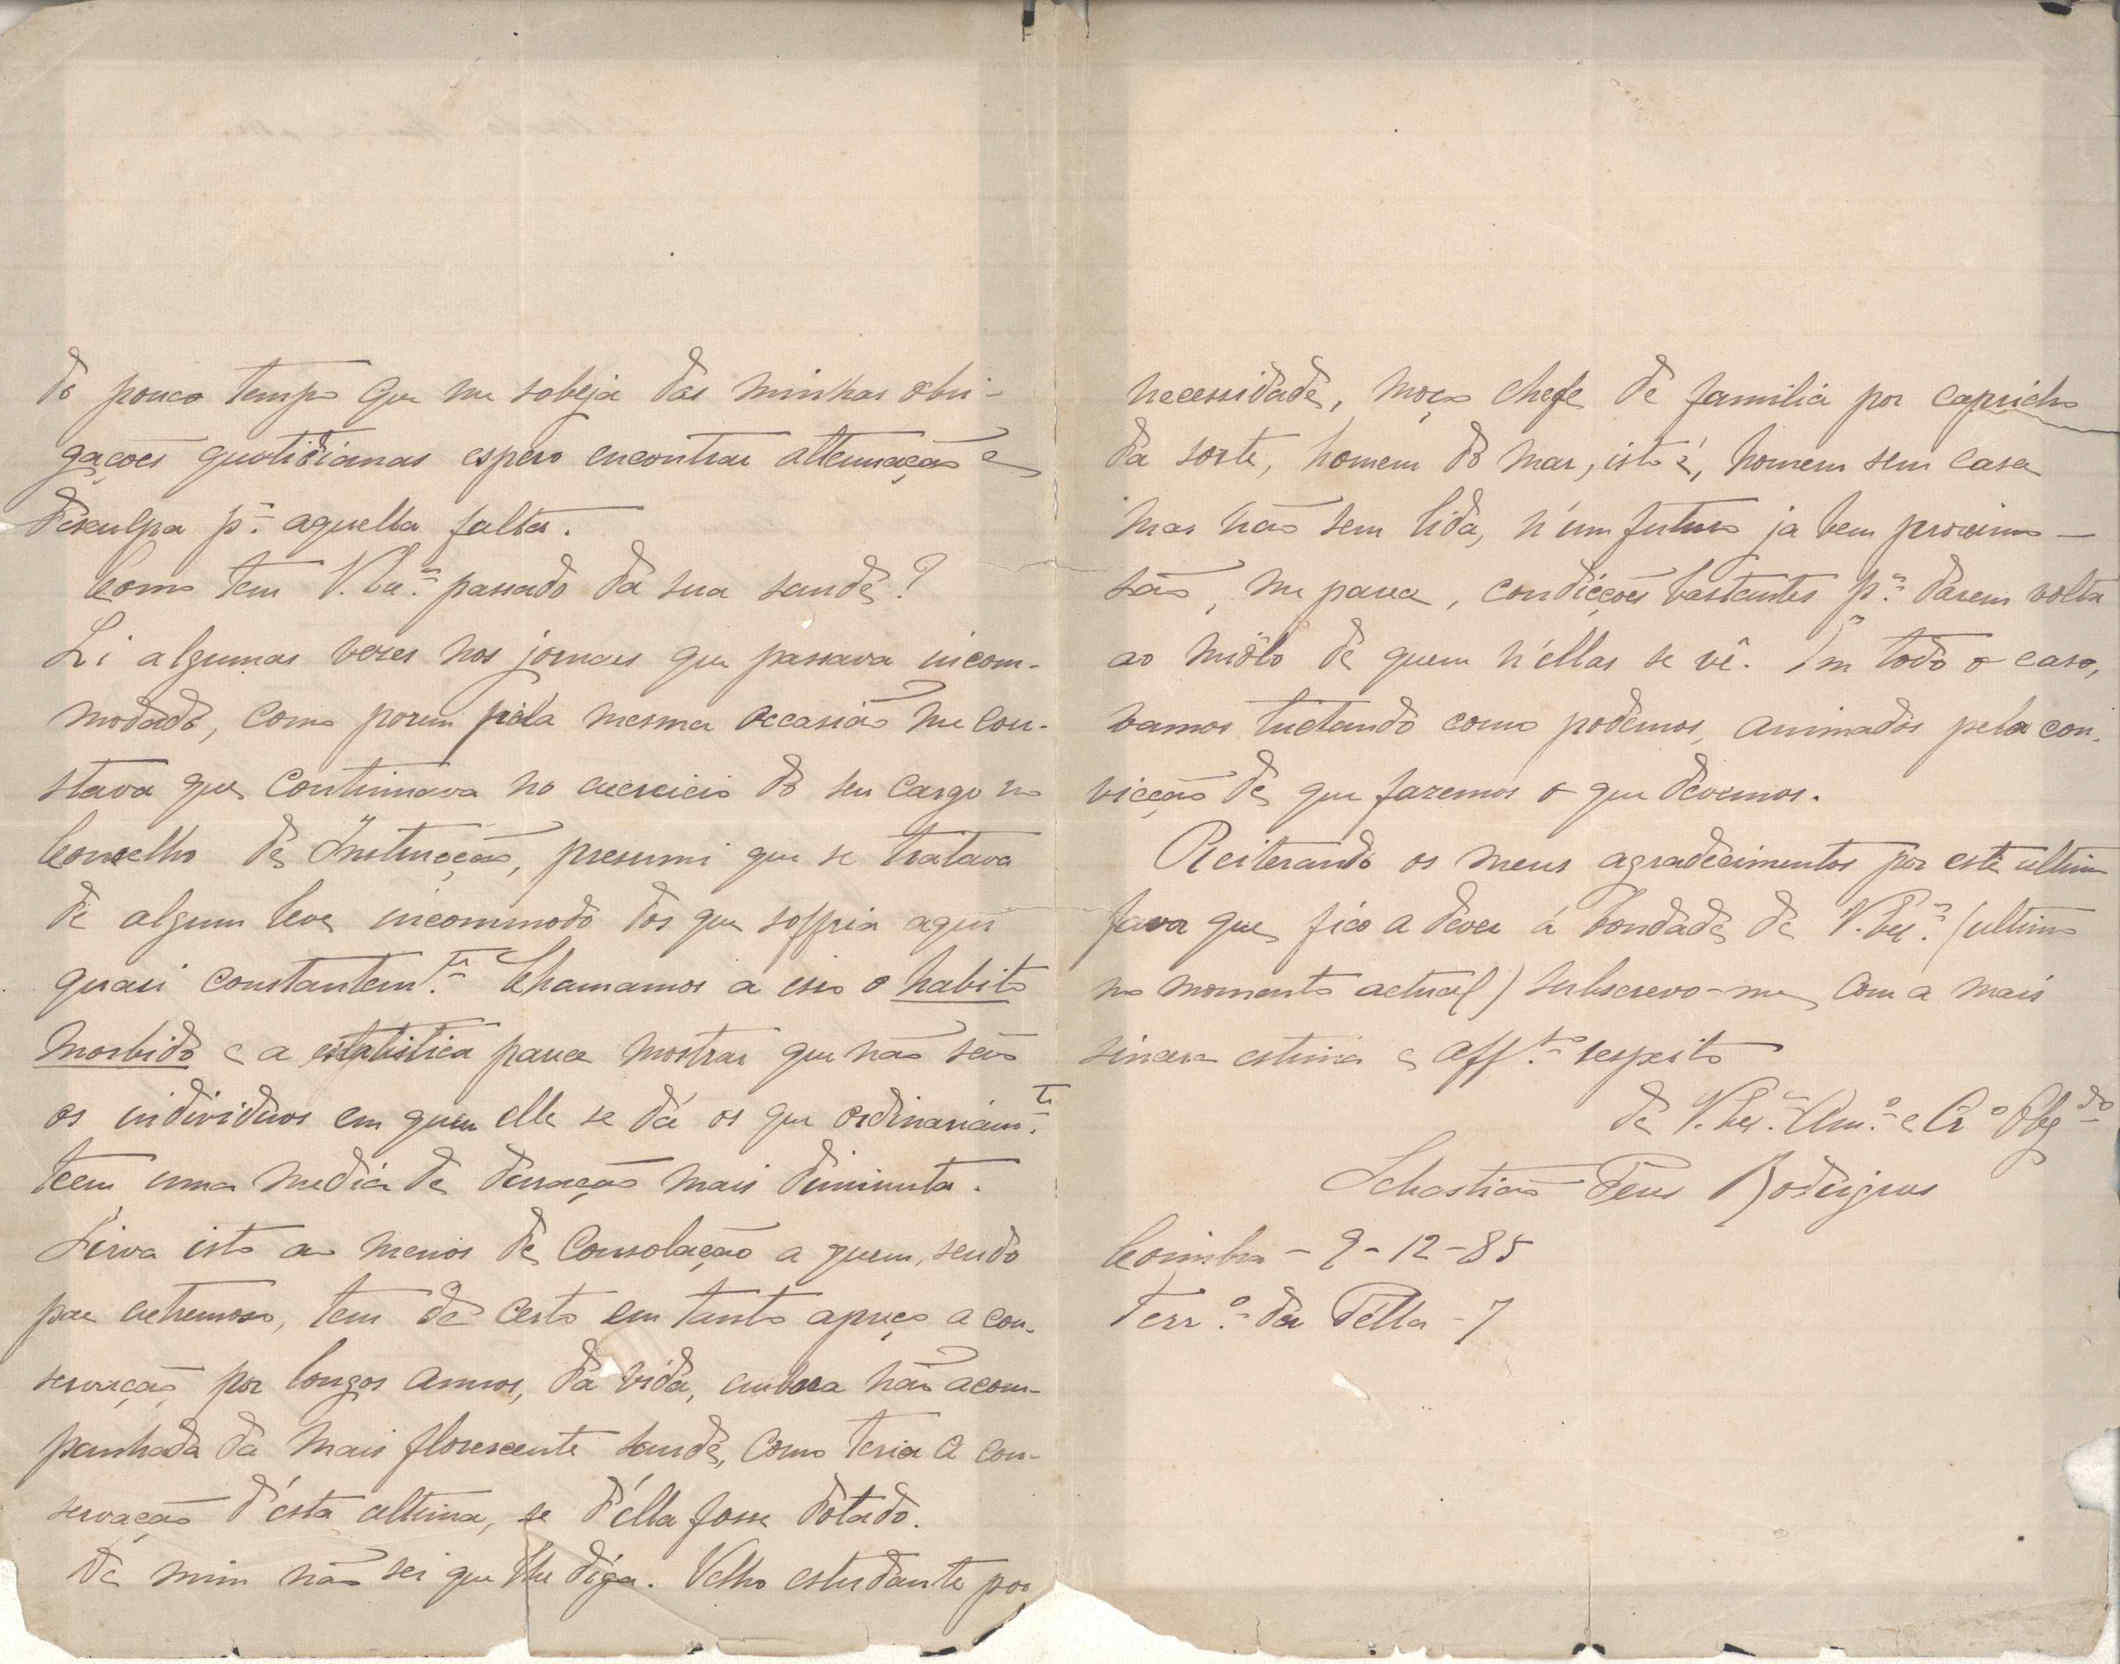 do pouco tempo que me sobeja das minhas obri-
gações quotidianas espero encontrar attenuação e
desculpa p.ª aquella falta.
Como tem V. Ex.ª passado da sua saude?
Li algumas vezes nos jornaes que passava incom-
modado, como porem pela mesma occasião me con-
stava que continuava no exercicio do seu cargo no
Conselho de Instrucção, presumi que se tratava
de algum leve incommodo dos que soffria aqui
quasi constantem.te Chamamos a isso o habito
morbido e a estatistica parece mostrar que não são
os individuos em quem elle se dá os que ordinariam.te
teem uma media de duração mais diminuta.
Sirva isto ao menos de consolação a quem, sendo
pae extremoso, tem de certo em tanto apreço a con-
servação, por longos annos, da vida, embora não acom-
panhada da mais florescente saude, como teria a con-
servação d'esta ultima, se d'ella fosse dotado.
De mim não sei que lhe diga. Velho estudante por
necessidade, moço chefe de familia por capricho
da sorte, homem do mar, isto é, homem sem casa
mas não sem lida, n'um futuro ja bem proximo —
são, me parece, condicções bastantes p.ª darem volta
ao miôlo de quem n'ellas se vê. Em todo o caso,
vamos luctando como podemos, animados pela con-
vicção de que fazemos o que devemos.
Reiterando os meus agradecimentos por este ultimo
favor que fico a dever á bondade de V. Ex.ª (ultimo
no momento actual) subscrevo-me com a mais
sincera estima e aff.to respeito
de V. Ex.ª Am.º e Cr.º Obg.do
Sebastião Peres Rodrigues
Coimbra - 9 - 12 - 85
Terr.º da Pélla - 7